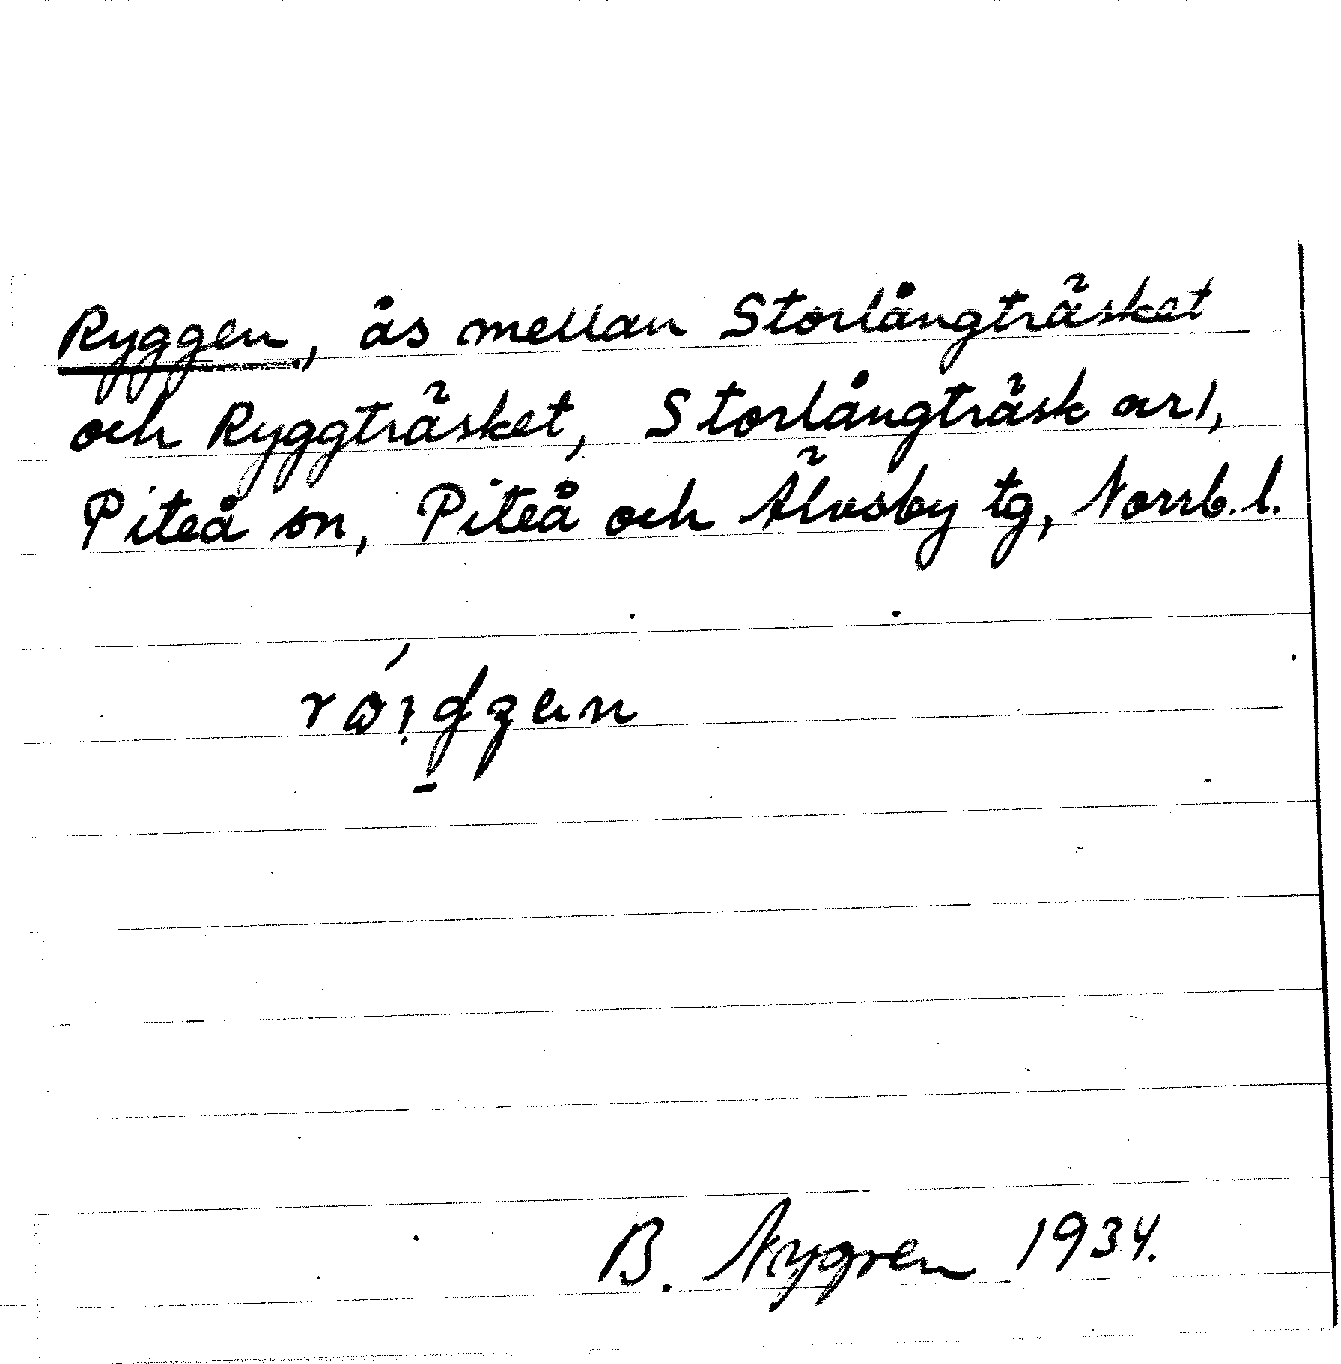 Ryggen, ås mellan Storlångträsket
och Ryggträsket, Storlångträsk ar1,
Piteå sn, Piteå och Älvsby tg, Norrb. l.
B. Nygren 1934.